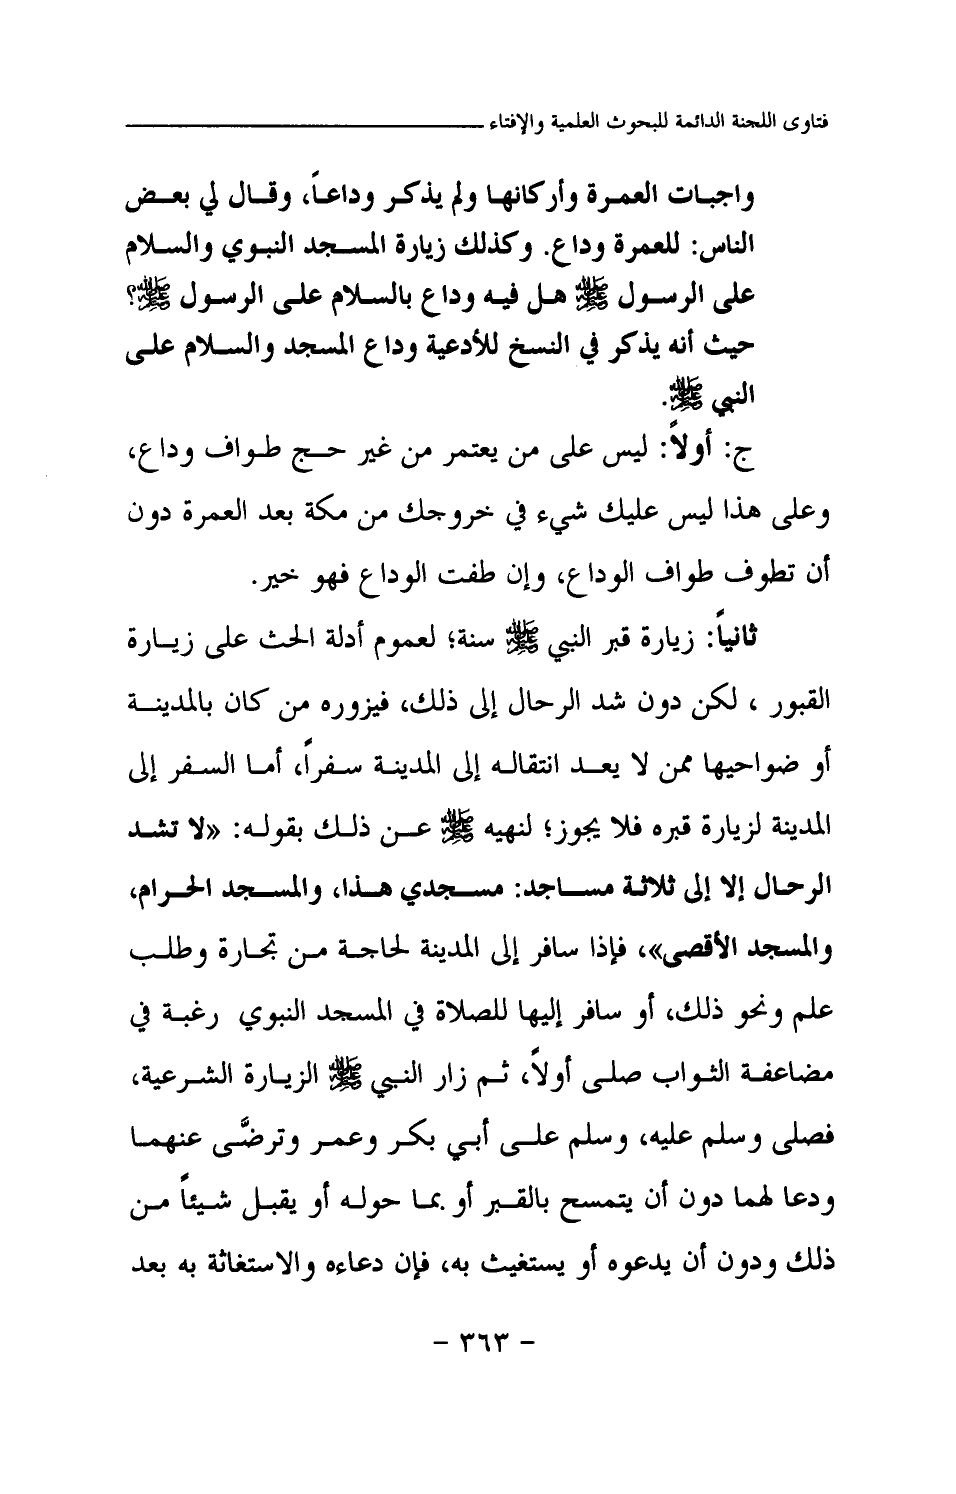 فتاوى اللجنة الدائمة للبحوث العلمية والإفتاء
واجبات العمرة وأركانها ولم يذكر وداعاً، وقال لي بعض
الناس: للعمرة وداع. وكذلك زيارة المسجد النبوي والسلام
على الرسول ﷺ هل فيه وداع بالسلام على الرسول ﷺ؟
حيث أنه يذكر في النسخ للأدعية وداع المسجد والسلام على
النبي ﷺ.
ج: أولاً: ليس على من يعتمر من غير حج طواف وداع،
وعلى هذا ليس عليك شيء في خروجك من مكة بعد العمرة دون
أن تطوف طواف الوداع، وإن طفت الوداع فهو خير.
ثانياً: زيارة قبر النبي ﷺ سنة؛ لعموم أدلة الحث على زيارة
القبور ، لكن دون شد الرحال إلى ذلك، فيزوره من كان بالمدينة
أو ضواحيها ممن لا يعد انتقاله إلى المدينة سفراً، أما السفر إلى
المدينة لزيارة قبره فلا يجوز؛ لنهيه ﷺ عن ذلك بقوله: «لا تشد
الرحال إلا إلى ثلاثة مساجد: مسجدي هذا، والمسجد الحرام،
والمسجد الأقصى»، فإذا سافر إلى المدينة لحاجة من تجارة وطلب
علم ونحو ذلك، أو سافر إليها للصلاة في المسجد النبوي رغبة في
مضاعفة الثواب صلى أولاً، ثم زار النبي ﷺ الزيارة الشرعية،
فصلى وسلم عليه، وسلم على أبي بكر وعمر وترضَّى عنهما
ودعا لهما دون أن يتمسح بالقبر أو بما حوله أو يقبل شيئاً من
ذلك ودون أن يدعوه أو يستغيث به، فإن دعاءه والاستغاثة به بعد
- ٣٦٣ -